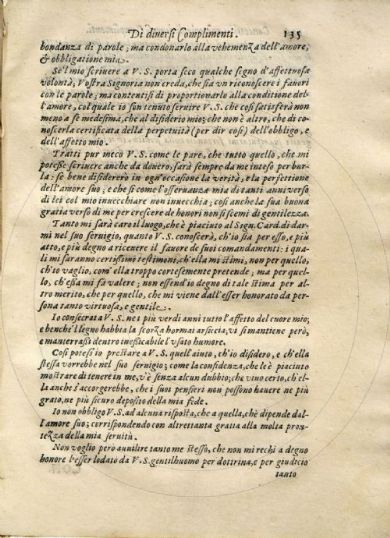 Di diversi Complimenti. 135
bondanza di parole; ma condonarlo alla vehemenza dell'amore,
& obbligatione mia.
Se'l mio scriuere a V. S. porta seco qualche segno d'affettuosa
volontà, Vostra Signoria non creda, che sia un riconoscere i fauori
con le parole; ma contentisi di proportionarlo alla conditione del-
l'amore, col quale io son tenuto seruire V. S. che così satisferà non
meno a se medesima, che al disiderio mio; che non è altro, che di co-
noscerla certificata della perpetuità (per dir così) dell'obbligo, e
dell'affetto mio.
Tratti pur meco V. S. come le pare, che tutto quello, che mi
potesse scriuere anche da douero, sarà sempre da me inteso per bur-
la: se bene disidererò in ogn'occasione la verità, e la perfettione
dell'amore suo; e che si come l'osseruanza mia di tanti anni verso
di lei col mio inuecchiare non inuecchia; così anche la sua buona
gratia verso di me per crescere de honori non si scemi di gentilezza.
Tanto mi sarà caro il luogo, che è piaciuto al Sign. Card. di dar-
mi nel suo seruigio, quanto V. S. conoscerà, ch'io sia per esso, e più
atto, e più degno a riceuere il fauore de suoi comandamenti: i qua-
li mi saranno certissimi testimoni, ch'ella mi stimi, non per quello,
ch'io vaglio, com'ella troppo cortesemente pretende; ma per quel-
lo, ch'essa mi fa valere; non essend'io degno di tale stima per al-
tro merito, che per quello, che mi viene dall'esser honorato da per-
sona tanto virtuosa, e gentile.
Io consecrai a V. S. ne i più verdi anni tutto l'affetto del cuore mio;
e benche'l legno habbia la scorza hormai arsiccia, vi si mantiene però,
e manterrassi dentro inefficabile l'vsato humore.
Così potess'io prestare a V. S. quell'aiuto, ch'io disidero, e ch'ella
stessa vorrebbe nel suo seruigio; come la confidenza, che le è piaciuto
mostrare di tenere in me, v'è senza alcun dubbio; che viuo certo, ch'el-
la anche s'accorgerebbe, che i suoi pensieri non possono hauere ne più
grato, ne più sicuro deposito della mia fede.
Io non obbligo V. S. ad alcuna risposta, che a quella, che dipende dal-
l'amore suo; corrispondendo con altrettanta gratia alla molta pron-
tezza della mia seruitù.
Non voglio però auuilire tanto me stesso, che non mi rechi a degno
honore l'esser lodato da V. S. gentilhuomo per dottrina, e per giudicio
tanto